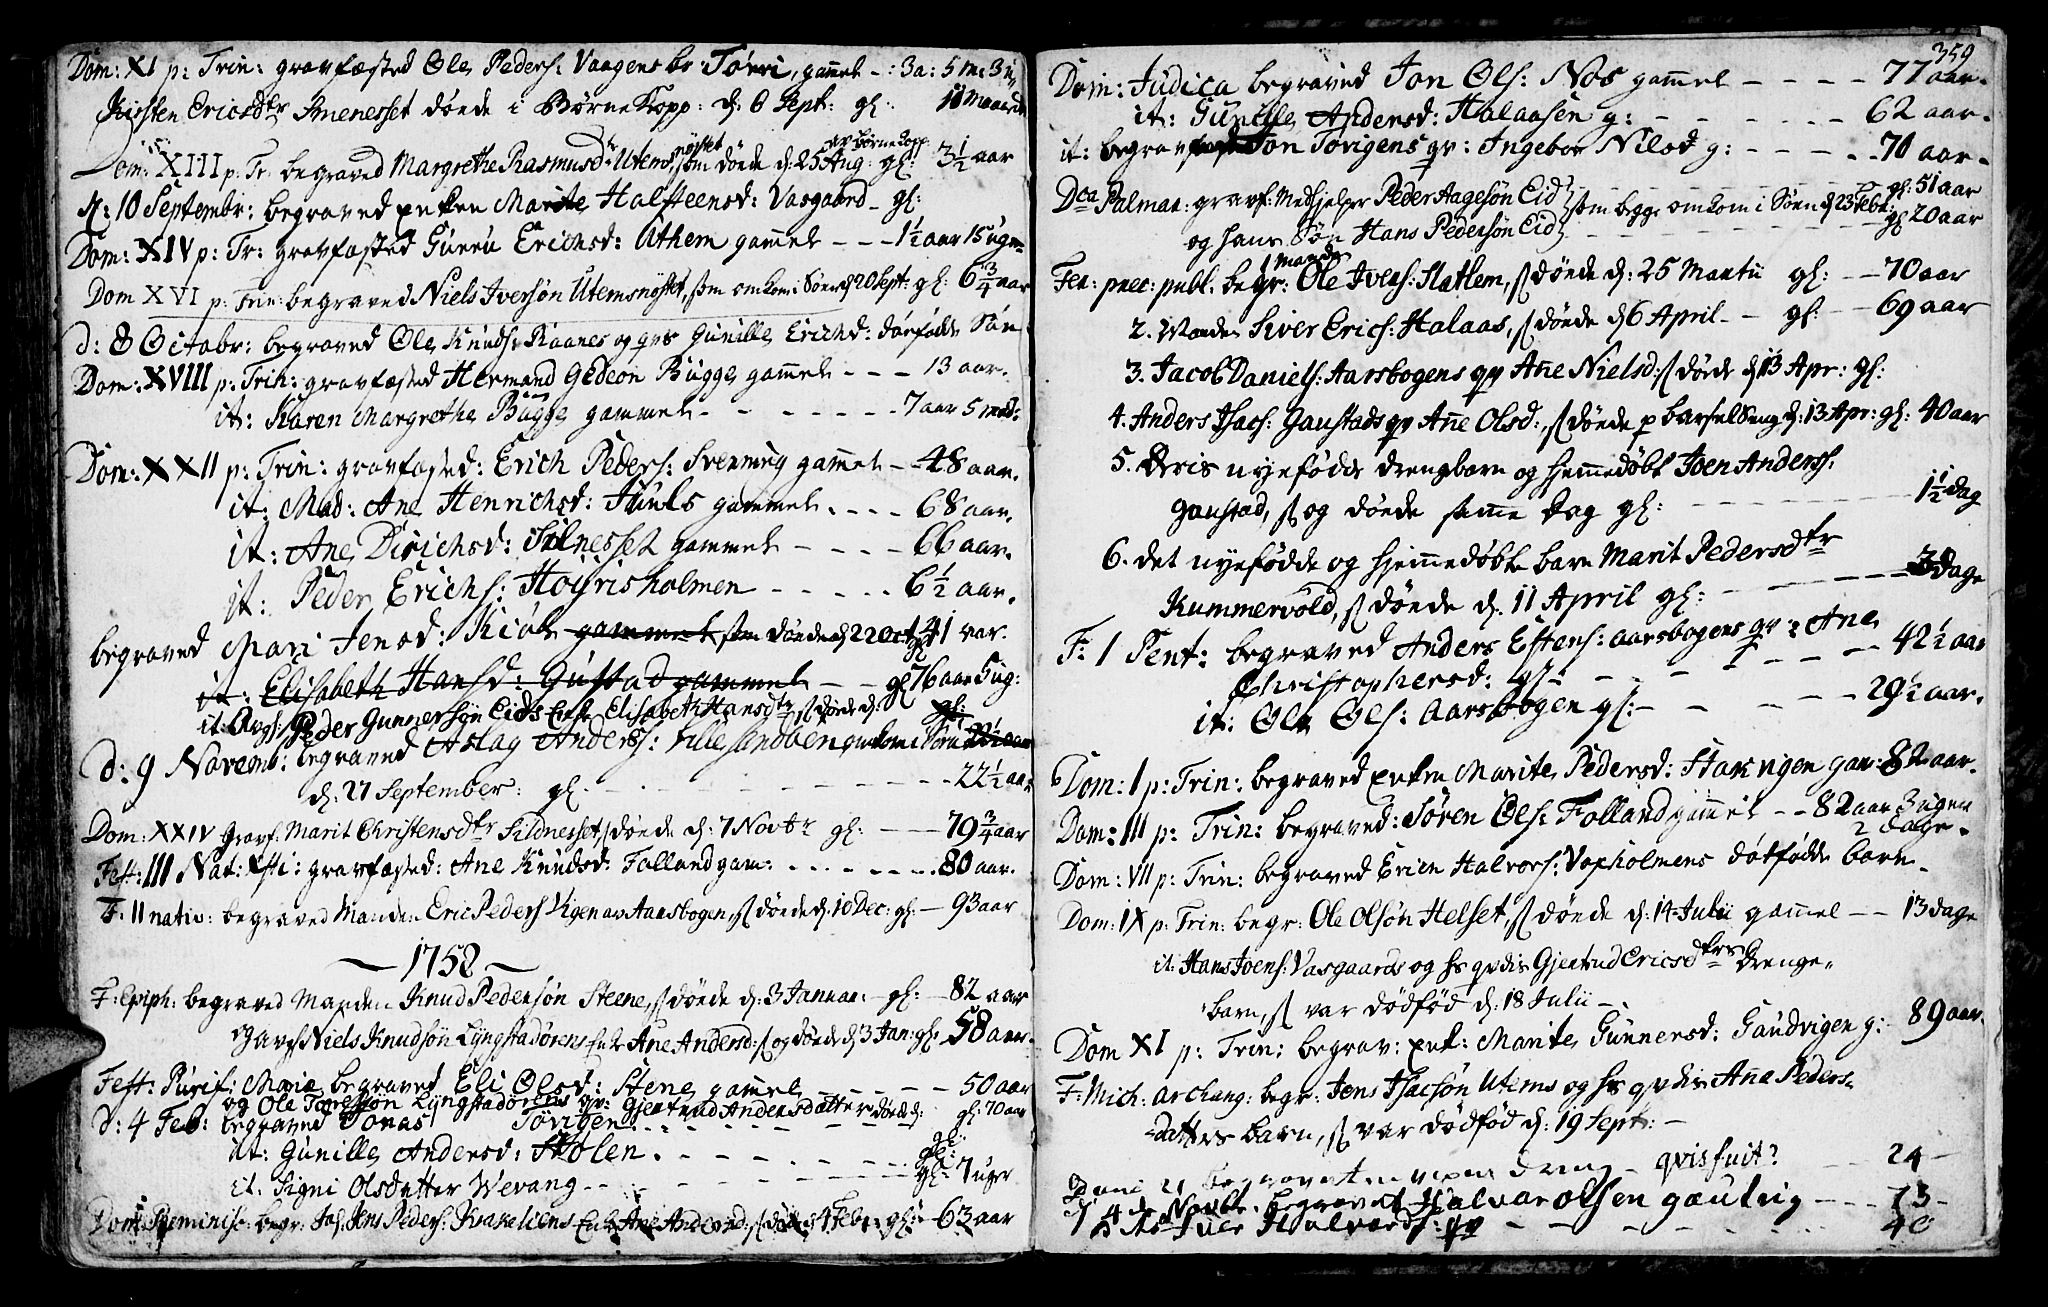 Dom: XI p: Trin: gravfæsted Ole Peders: Vaagens br: Tørri, gamel -: 3 a: 5 m: 3 u
Kirsten Ericsdtr Smenesset döede i BörneKopp: d: 6 Sept: gl: 11 maaneder
Dom: XIII p: Tr: begraved Margrethe Rasmusdr Utemsnöstet, som döede d: 25 Aug: af börnekopp gl: 3½ aar
d: 10 Septembr: begraved enken Marite Halsteensd: Vasgaard gl:
Dom: XIV p: Tr: gravfæsted Guru Erichsd: Uthem gammel - - - 1½ aar 15 uger
Dom XVI p: Trin: begraved Niels Iversön Utemsnöstet, som omkom i Söen d 20 Sept: gl: 6¾ aar
d: 8 Octobr: begraved Ole Knuds: Raanes og qvs Gunille Erichsd: dödfödde Sön
Dom: XVIII p: Trin: gravfæsted Hermand Gedeon Bugge gammel - - - 13 aar.
it: Karen Margrethe Bugge gammel - - - - - - - 7 aar 5 md:
Dom: XXII p: Trin: gravfæsted: Erich Peders: Svenning gammel - - 48 aar.
it: Mad: Ane Henrichsd: Funks gammel. - - - - 68 aar.
it: Ane Dirichsd: Silnesset gammel - - - - 66 aar.
it: Peder Erichs: Hoijrisholmen - - - - - 6½ aar.
begraved Mari Jensd: Kiöl gammel som döede d 22 Oct gl 41 aar.
it: Elisabeth Hansd: Gustad gammel - - gl 76 aar 5 ug:
it: Avgs: Peder Gunnersön Eids Enke Elisabeth Hansdtr, s döede d:
d: 9 Novemb: begraved Aslag Anders: Lillesandøen omkom i Söen gl: 22½ aar
d: 27 September: gl. - - - - - - - - 22½ aar
Dom: XXIV Gravf: Marit Christensdtr Sildnesset, s döede d: 7 Novbr gl: - - 79¾ aar
Fest: III Nat: Xsti: gravfæsted: Ane Knudsd: Folland gam: - - - - - - - 80 aar.
F. II nativ: begraved Manden Eric Peders Vigen av Aarsbogen, s döede d: 10 Dec: gl: - 93 aar
1752
F: Epiph: begraved Manden Knud Pedersön Steene, s döede d: 3 Januar: gl: - 82 aar
og avgs Niels Knudsön Lyngstadörens Enke Ane Andersd: s og döede d 3 Jan: gl: 58 aar.
Fest: Purif: Mariæ begraved Eli Olsd: Stene gamel - - - - - 50 aar
og Ole Toresson Lyngstadörens qv: Gjertrud Andersdatter döede d: gl: 70 aar
d: 4 Feb: begraved Jonas Törrigen - - - - - - - - -
it: Gunille Andersd: Stolen. - - - - - - - gl:
it: Signi Olsdatter Wevang - - - - - - gl: 7 uger
Dom: Reminisc: begr: Jens Peders: Krakeliens Enke Ane Andersd: s döede 4 Febr: gl: - 63 aar
359
Dom: Judica begraved Jon Ols: Nos gammel - - - - 77 aar.
it: Gunille Andersd: Halaasen g: - - - - - - 62 aar.
it: begraved Jon Törigens qv: Ingebor Nilsd g: - - - - - 70 aar.
Dca Palmar: gravf: Medhjelper Peder Aagesön Eid - - - - gl: 51 aar
som begge omkom i Söen d 23 Febr:
og hans Søn Hans Pedersön Eid - - - - - - gl 20 aar
Fer: prec: publ. begr: 1 Manden Ole Ivers: Slatlem, s döede d: 25 Martii gl: - - 70 aar
2. Manden Siver Erics: Halaas, s döede d 6 April - - gl: - - 69 aar
3. Jacob Daniels: Aarsbogens qv Ane Nielsd: s döede d 13 Apr: gl:
4. Anders Isacs: Gaustads qv Ane Olsd:, s döede p barselSeng d: 13 Apr: gl: 40 aar
5. Dris nyefödde drengbarn og hjemedöbt Joen Anderss:
Gaustad, s og döede same Dag gl: - - - - - - - 1½ dag
6. det nyefödde og hjemedöbte barn Marit Pedersdtr
Kummervold, s döede d. 11 April gl: - - - - - - 3 dage
F: 1 Pent: begraved Anders Estens: Aarsbogens qv: Ane
Christophersd: gl: - - - - - - - 42½ aar
it: Ole Ols: Aarsbogen gl: - - - - - - 29½ aar.
Dom: I p: Trin: begraved enken Marite Pedersd: Starvigen gam: 82 aar.
Dom: III p: Trin: begraved: Sören Ols: Folland gammel - - 82 aar 3 ugen 2 dage.
Dom: VII p: Trin: begraved Erich Halvors: Vogholmens dötfödde barn
Dom: IX p: Trin: begr: Ole Olsön Helset, s döede d: 14 Julii gamel - - 13 dage
it: Hans Joens: Vasgaards og hs qvdis Gjertrud Ericsdtrs Drenge-
barn, s var dödföd d: 18 Julii -.
Dom XI p: Trin: begrav: enk: Marite Gunnersd: Sandvigen g: 89 aar.
F: Mich: archang: begr: Jens Isacsön Utems og hs qvdis Ane Peders-
datters barn, s var dödföd d: 19 Sept: -
begravet en ... dreng - qvis fuit? - - 24 -
d 4 de Novbr. begravet Halvar Olsen Gautvig - - - 73 -
... Halvards: qv - - - - - - - 40